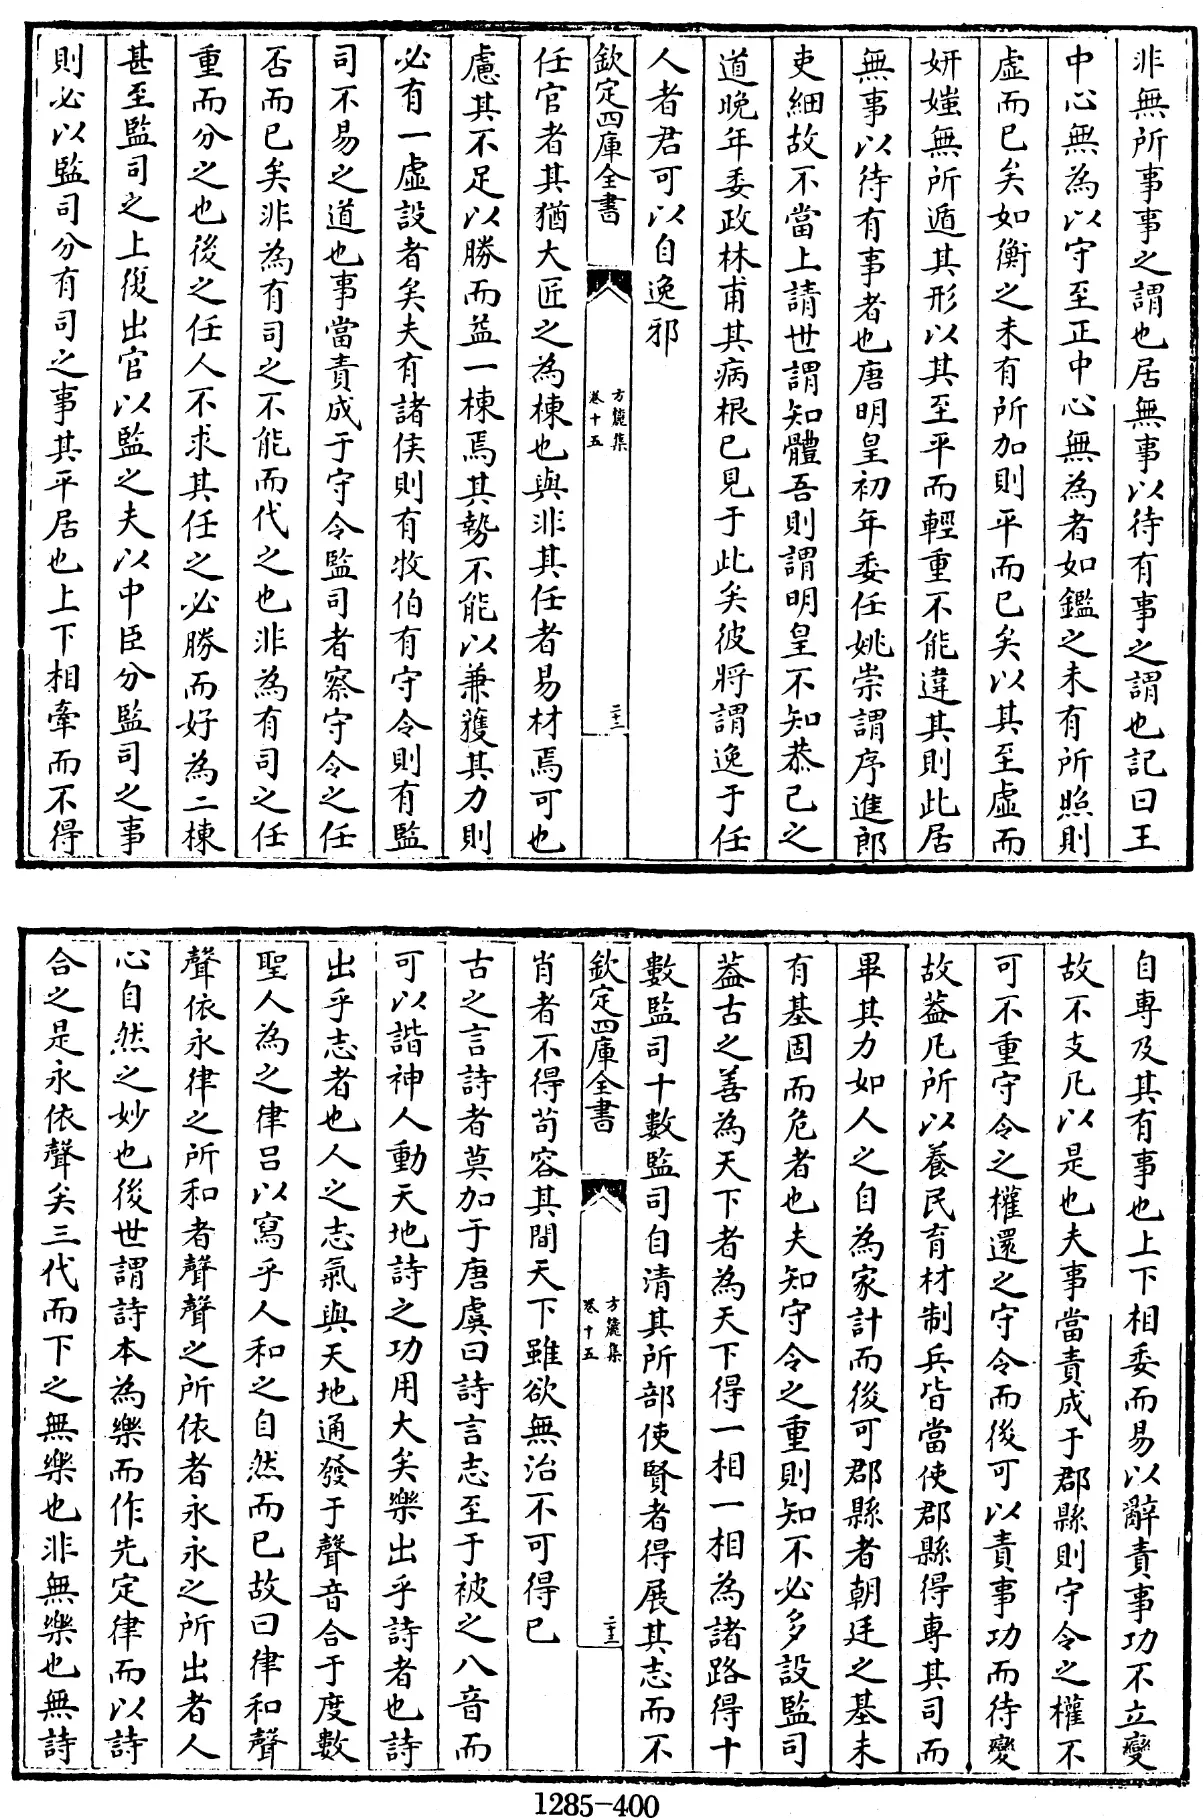 非無所事事之謂也居無事以待有事之謂也記曰王
中心無為以守至正中心無為者如鑑之未有所照則
虛而已矣如衡之未有所加則平而已矣以其至虛而
妍媸無所遁其形以其至平而輕重不能違其則此居
無事以待有事者也唐明皇初年委任姚崇謂序進郎
吏細故不當上請世謂知體吾則謂明皇不知恭己之
道晚年委政林甫其病根已見于此矣彼將謂逸于任
人者君可以自逸邪
欽定四庫全書
方麓集
卷十五
二十二
任官者其猶大匠之為棟也與非其任者易材焉可也
慮其不足以勝而益一棟焉其勢不能以兼獲其力則
必有一虛設者矣夫有諸侯則有牧伯有守令則有監
司不易之道也事當責成于守令監司者察守令之任
否而已矣非為有司之不能而代之也非為有司之任
重而分之也後之任人不求其任之必勝而好為二棟
甚至監司之上復出官以監之夫以中臣分監司之事
則必以監司分有司之事其平居也上下相牽而不得
自專及其有事也上下相委而易以辭責事功不立變
故不支凡以是也夫事當責成于郡縣則守令之權不
可不重守令之權還之守令而後可以責事功而待變
故葢凡所以養民育材制兵皆當使郡縣得專其司而
畢其力如人之自為家計而後可郡縣者朝廷之基未
有基固而危者也夫知守令之重則知不必多設監司
葢古之善為天下者為天下得一相一相為諸路得十
數監司十數監司自清其所部使賢者得展其志而不
欽定四庫全書
方麓集
卷十五
二十三
肖者不得苟容其間天下雖欲無治不可得已
古之言詩者莫加于唐虞曰詩言志至于被之八音而
可以諧神人動天地詩之功用大矣樂出乎詩者也詩
出乎志者也人之志氣與天地通發于聲音合于度數
聖人為之律呂以寫乎人和之自然而已故曰律和聲
聲依永律之所和者聲聲之所依者永永之所出者人
心自然之妙也後世謂詩本為樂而作先定律而以詩
合之是永依聲矣三代而下之無樂也非無樂也無詩
1285-400